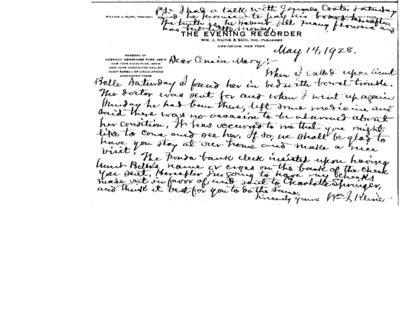 P.S. I had a talk with James Coates Saturday
and he promised to pay his board hereafter
The truth is he too many flowers and
has not
WILLIAM J. KLINE, PRESIDENT
THE EVENING RECORDER
WM. J. KLINE & SON, INC. PUBLISHERS
AMSTERDAM, NEW YORK
MEMBERS OF
AMERICAN NEWSPAPER PUB. ASS'N
NEW YORK STATE PUB. ASS'N
AUDIT BUREAU OF CIRCULATIONS
ASSOCIATED PRESS
May 14, 1928.
Dear Cousin Mary:-
When I called upon Aunt
Belle Saturday I found her in bed with bowel trouble.
The doctor was sent for and when I went up again
Sunday he had been there, left some medicine and
said there was no occasion to be alarmed about
her condition. It has occurred to me that you might
like to come and see her. If so, we shall be glad to
have you stay at our home and make a nice
visit.
The Fonda bank clerk insisted upon having
Aunt Belle's name or cross on the back of the check
you sent. Hereafter I'm going to have my checks
made out in favor of and sent to Charlotte Springer,
and think it best for you to do the same.
Sincerely yours Wm J. Kline